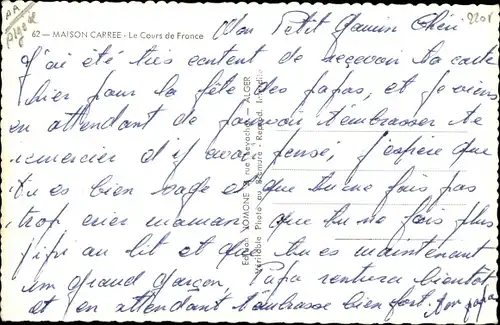 AA
Algérie
2208
62 — MAISON CARREE - Le Cours de France
Mon Petit Gamin Chéri
J'ai été très content de recevoir ta carte
hier pour la fête des papas, et je viens
en attendant de pouvoir t'embrasser te
remercier d'y avoir pensé, j'espère que
tu es bien sage et que tu ne fais pas
trop crier maman, que tu ne fais plus
pipi au lit et que tu es maintenant
un grand garçon, Papa rentrera bientôt
et en attendant t'embrasse bien fort. Ton papa
Edition JOMONE - 3 rue Levacher - ALGER -
Véritable Photo au Bromure - Reprod. Interdite